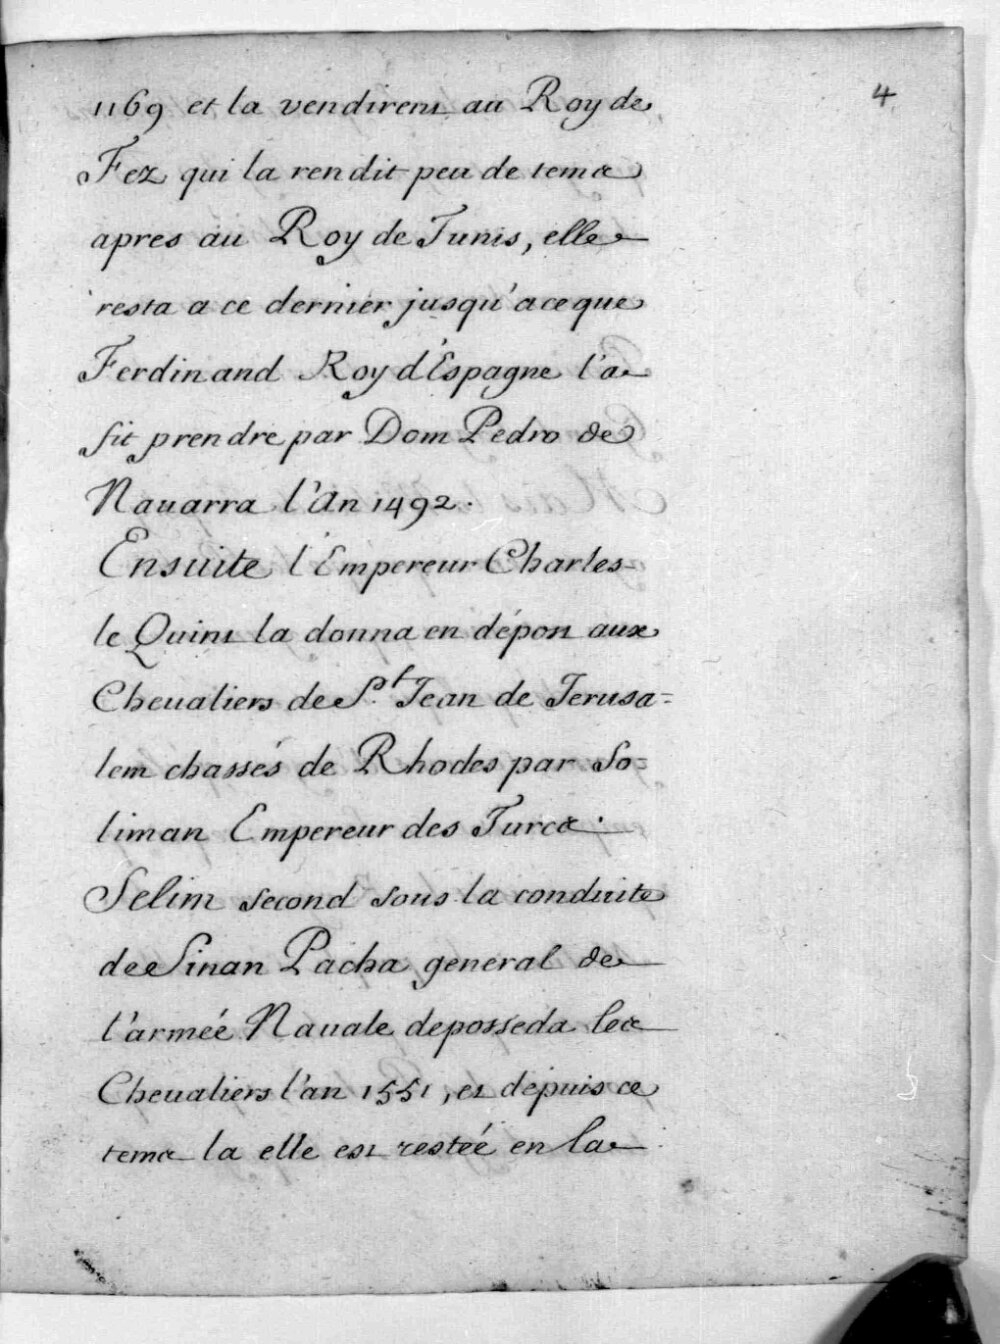 4
1169 et la vendirent au Roy de
Fez qui la rendit peu de tems
apres au Roy de Tunis, elle
resta a ce dernier jusqu'a ce que
Ferdinand Roy d'Espagne l'a
fit prendre par Dom Pedro de
Nauarra l'An 1492.
Ensuite l'Empereur Charles
le Quint la donna en dépost aux
Cheualiers de St. Jean de Jerusa=
lem chassés de Rhodes par So=
liman Empereur des Turcs.
Selim second sous la conduite
de Sinan Pacha general de
l'armeé Nauale deposseda les
Cheualiers l'an 1551, et depuis ce
tems la elle est resteé en la